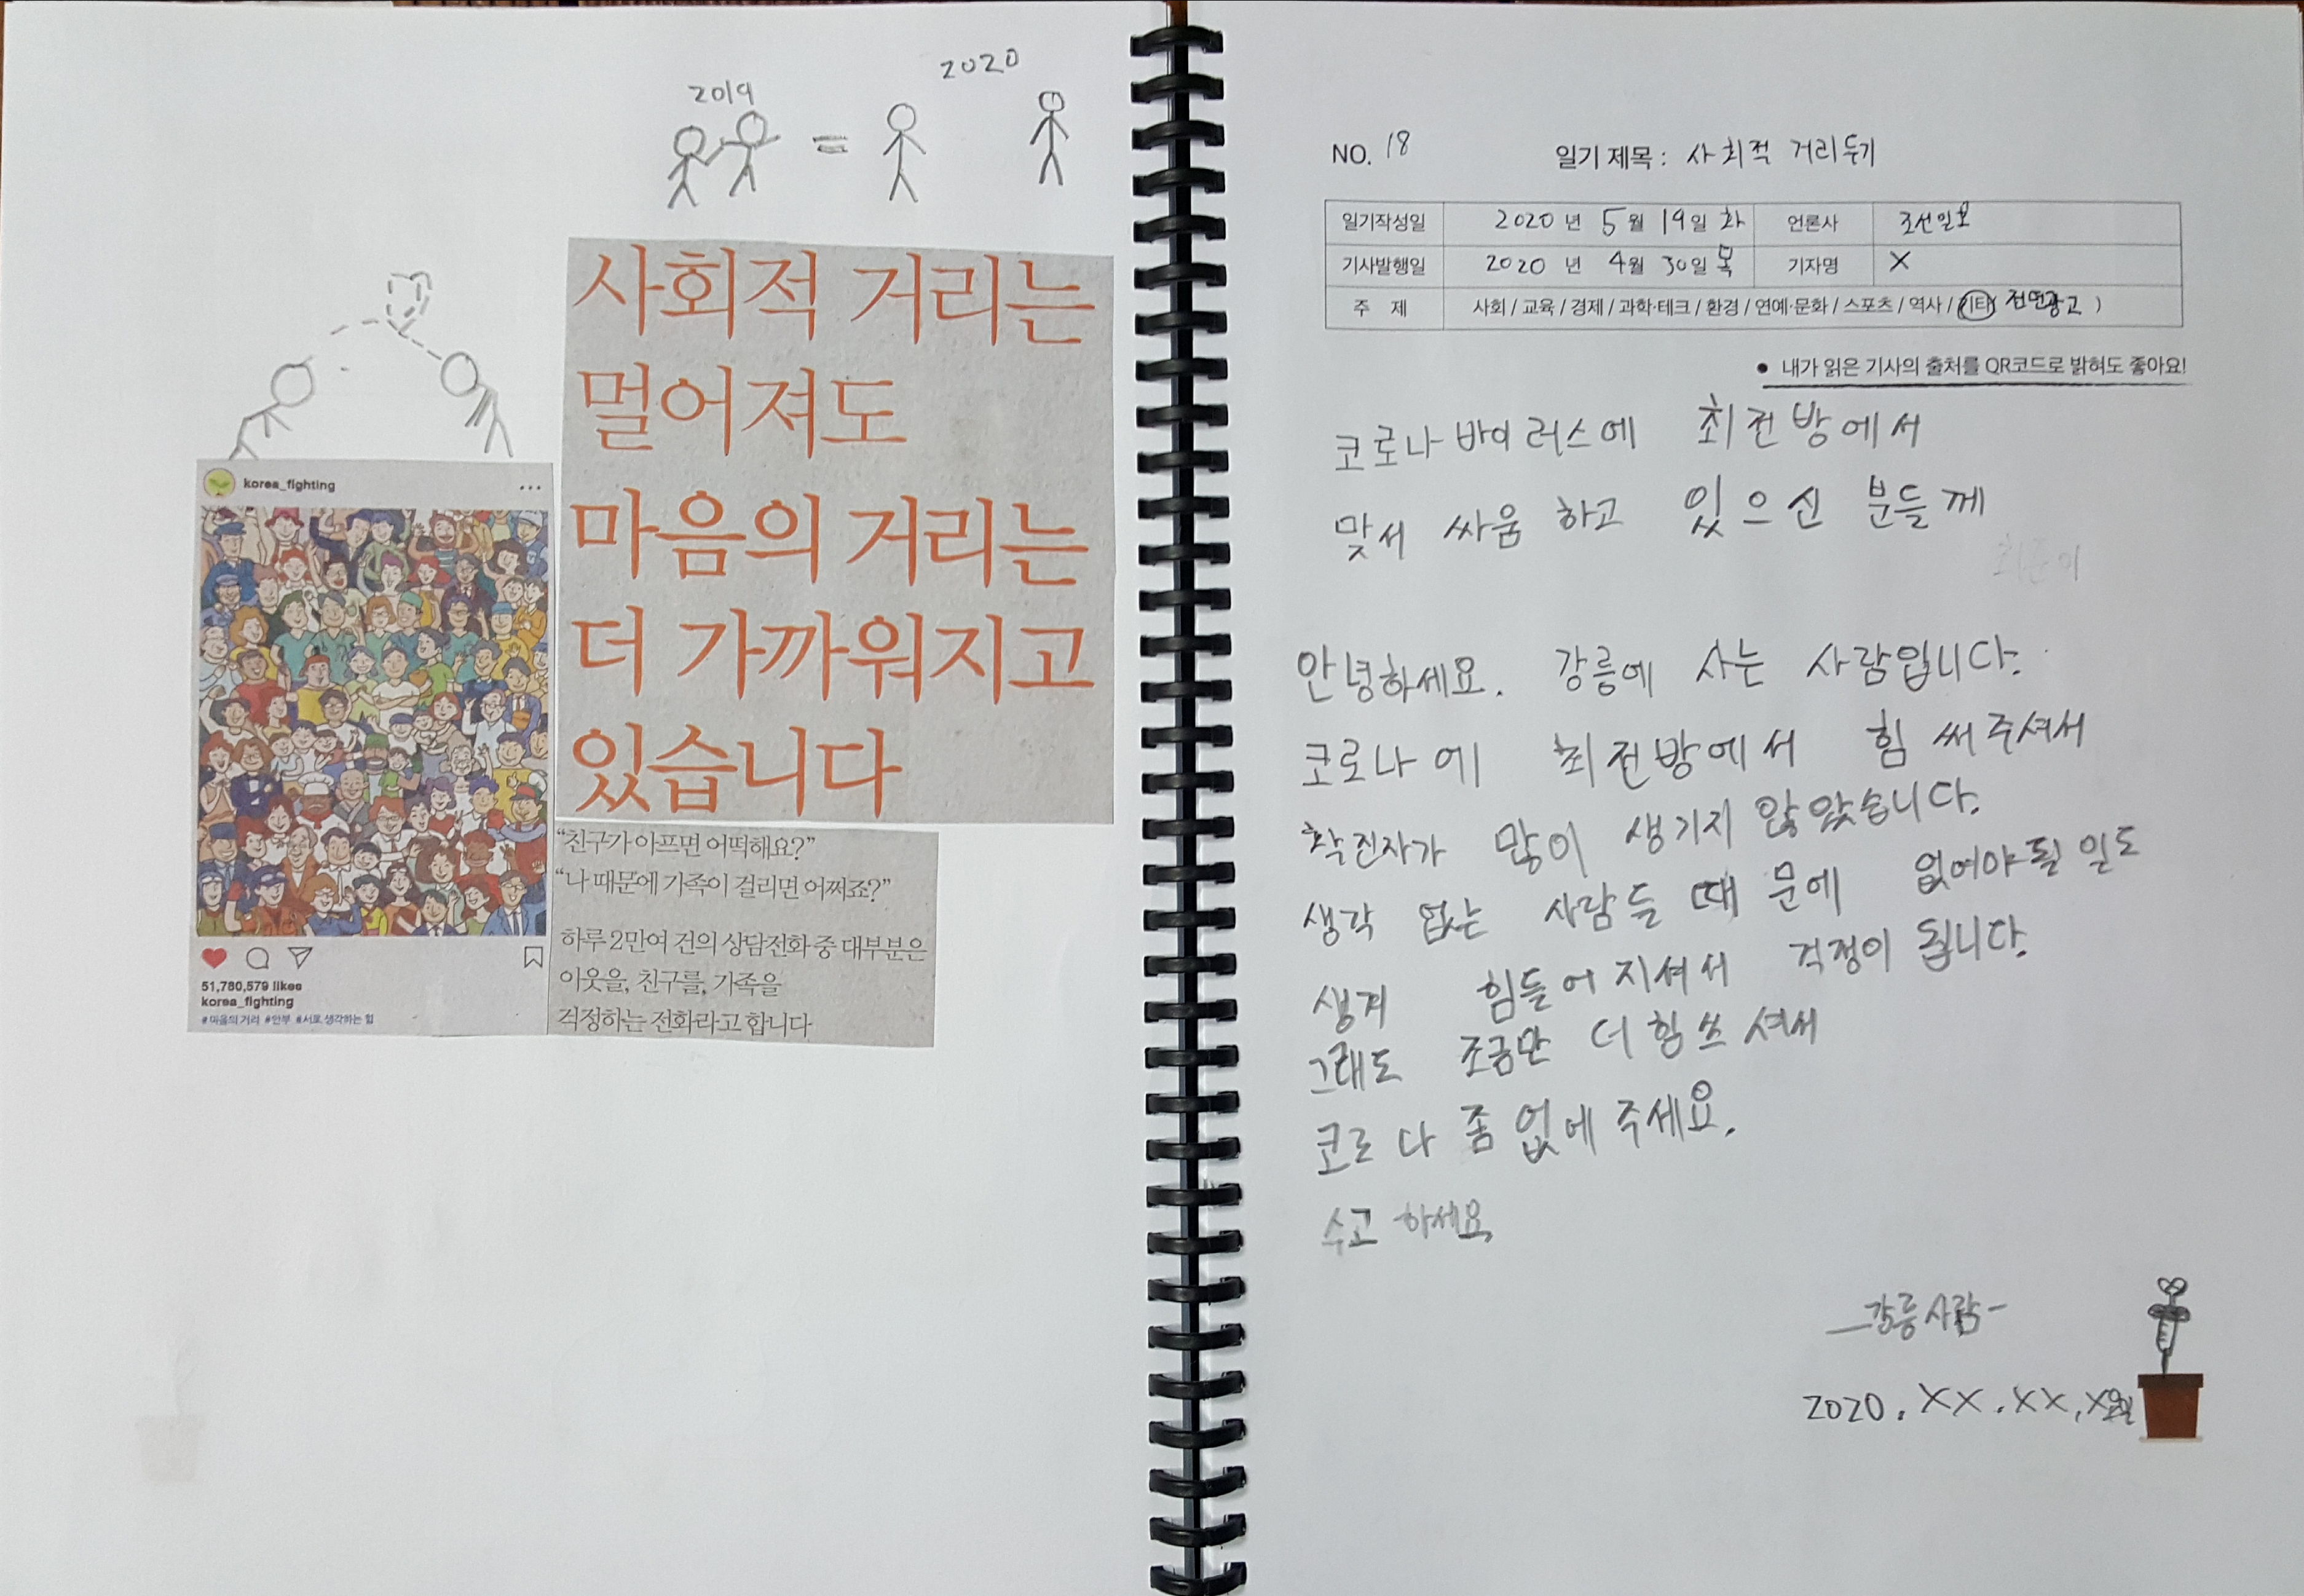 2019
2020
사회적 거리는
멀어져도
마음의 거리는
더 가까워지고
있습니다
korea_fighting
51,780,579 likes
korea_fighting
#마음의거리 #안부 #서로생각하는힘
“친구가 아프면 어떡해요?”
“나 때문에 가족이 걸리면 어쩌죠?”
하루 2만여 건의 상담전화 중 대부분은
이웃을, 친구를, 가족을
걱정하는 전화라고 합니다
NO. 18 일기 제목 : 사회적 거리두기
일기작성일 2020 년 5 월 19 일 화 언론사 조선일보
기사발행일 2020 년 4 월 30 일 목 기자명 X
주 제 사회 / 교육 / 경제 / 과학·테크 / 환경 / 연예·문화 / 스포츠 / 역사 / 기타( 전면광고 )
● 내가 읽은 기사의 출처를 QR코드로 밝혀도 좋아요!
코로나 바이러스에 최전방에서
맞서 싸움 하고 있으신 분들께
안녕하세요. 강릉에 사는 사람입니다.
코로나에 최전방에서 힘 써주셔서
확진자가 많이 생기지 않았습니다.
생각 없는 사람들 때문에 없어야 될 일도
생겨 힘들어 지셔서 걱정이 됩니다.
그래도 조금만 더 힘쓰셔서
코로나 좀 없에 주세요.
수고 하세요
-강릉 사람-
2020. XX. XX. X요일